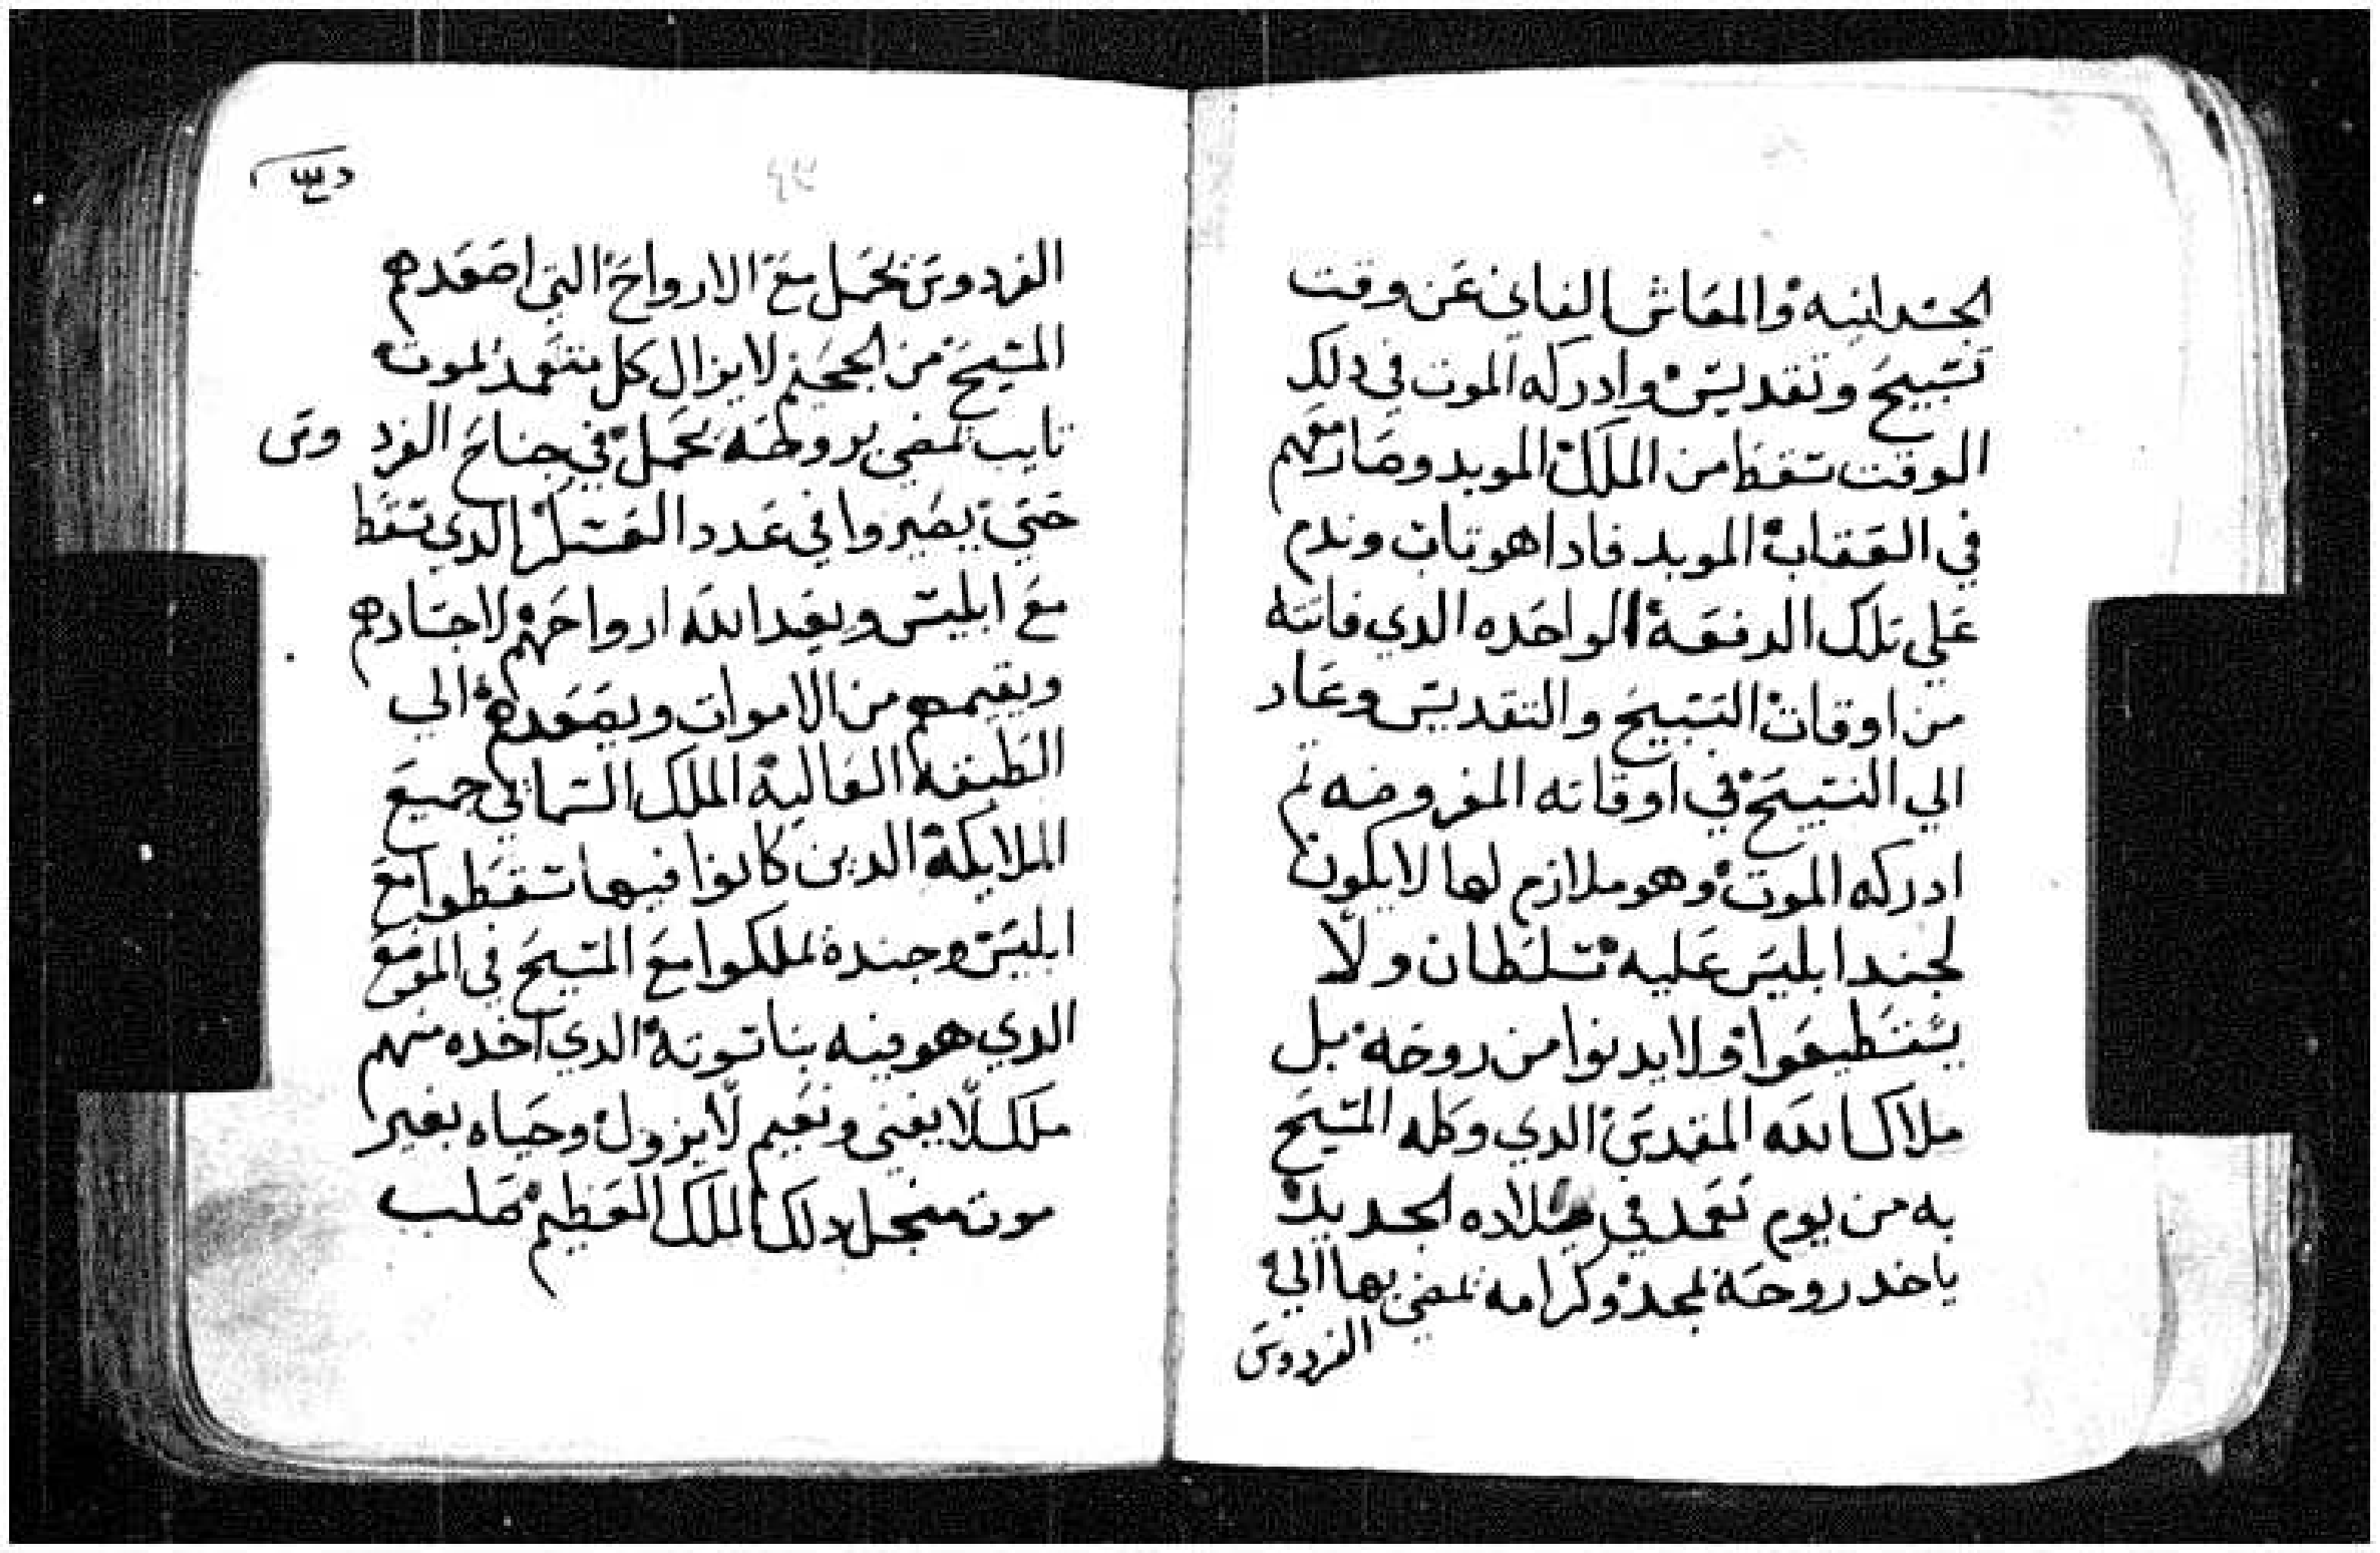 الجسدانيه والمعاش الفاني عن وقت
تسبيح وتقديس وادركه الموت في دلك
الوقت سقط من الملك الموبد وصار معهم
في العقاب الموبد فادا هو تاب وندم
علي تلك الدفعة الواحده الدي فاتته
من اوقات التسبيح والتقديس وعاد
الي التسبيح في اوقاته المفروضه تم
ادركه الموت وهو ملازم لها لا يكون
لجند ابليس عليه سلطان ولا
يستطيعوا ولا يدنوا من روحه بل
ملاك الله المقدس الدي وكله المسيح
به من يوم تعمد في ميلاده الجديد
ياخد روحه بمجد وكرامه يمضي بها الي
الفردوس
الفردوس يحمل مع الارواح التي اصعدهم
المسيح من الجحيم لا يزال كل متعمد يموت
تايب يمضي بروحه يحمل في جناح الفردوس
حتي يصيروا في عدد العسكر الدي سقط
مع ابليس ويعيد الله ارواحهم لاجسادهم
ويقيمهم من الاموات ويصعدهم الي
الطبقه العالية الملك السماني جميع
الملايكة الدين كانوا فيها سقطوا مع
ابليس وجنده يملكوا مع المسيح في الموضع
الدي هو فيه بناسوته الدي اخده منهم
ملك لا يفني ونعيم لا يزول وحياه بغير
موت منجل دلك الملك العظيم صلب